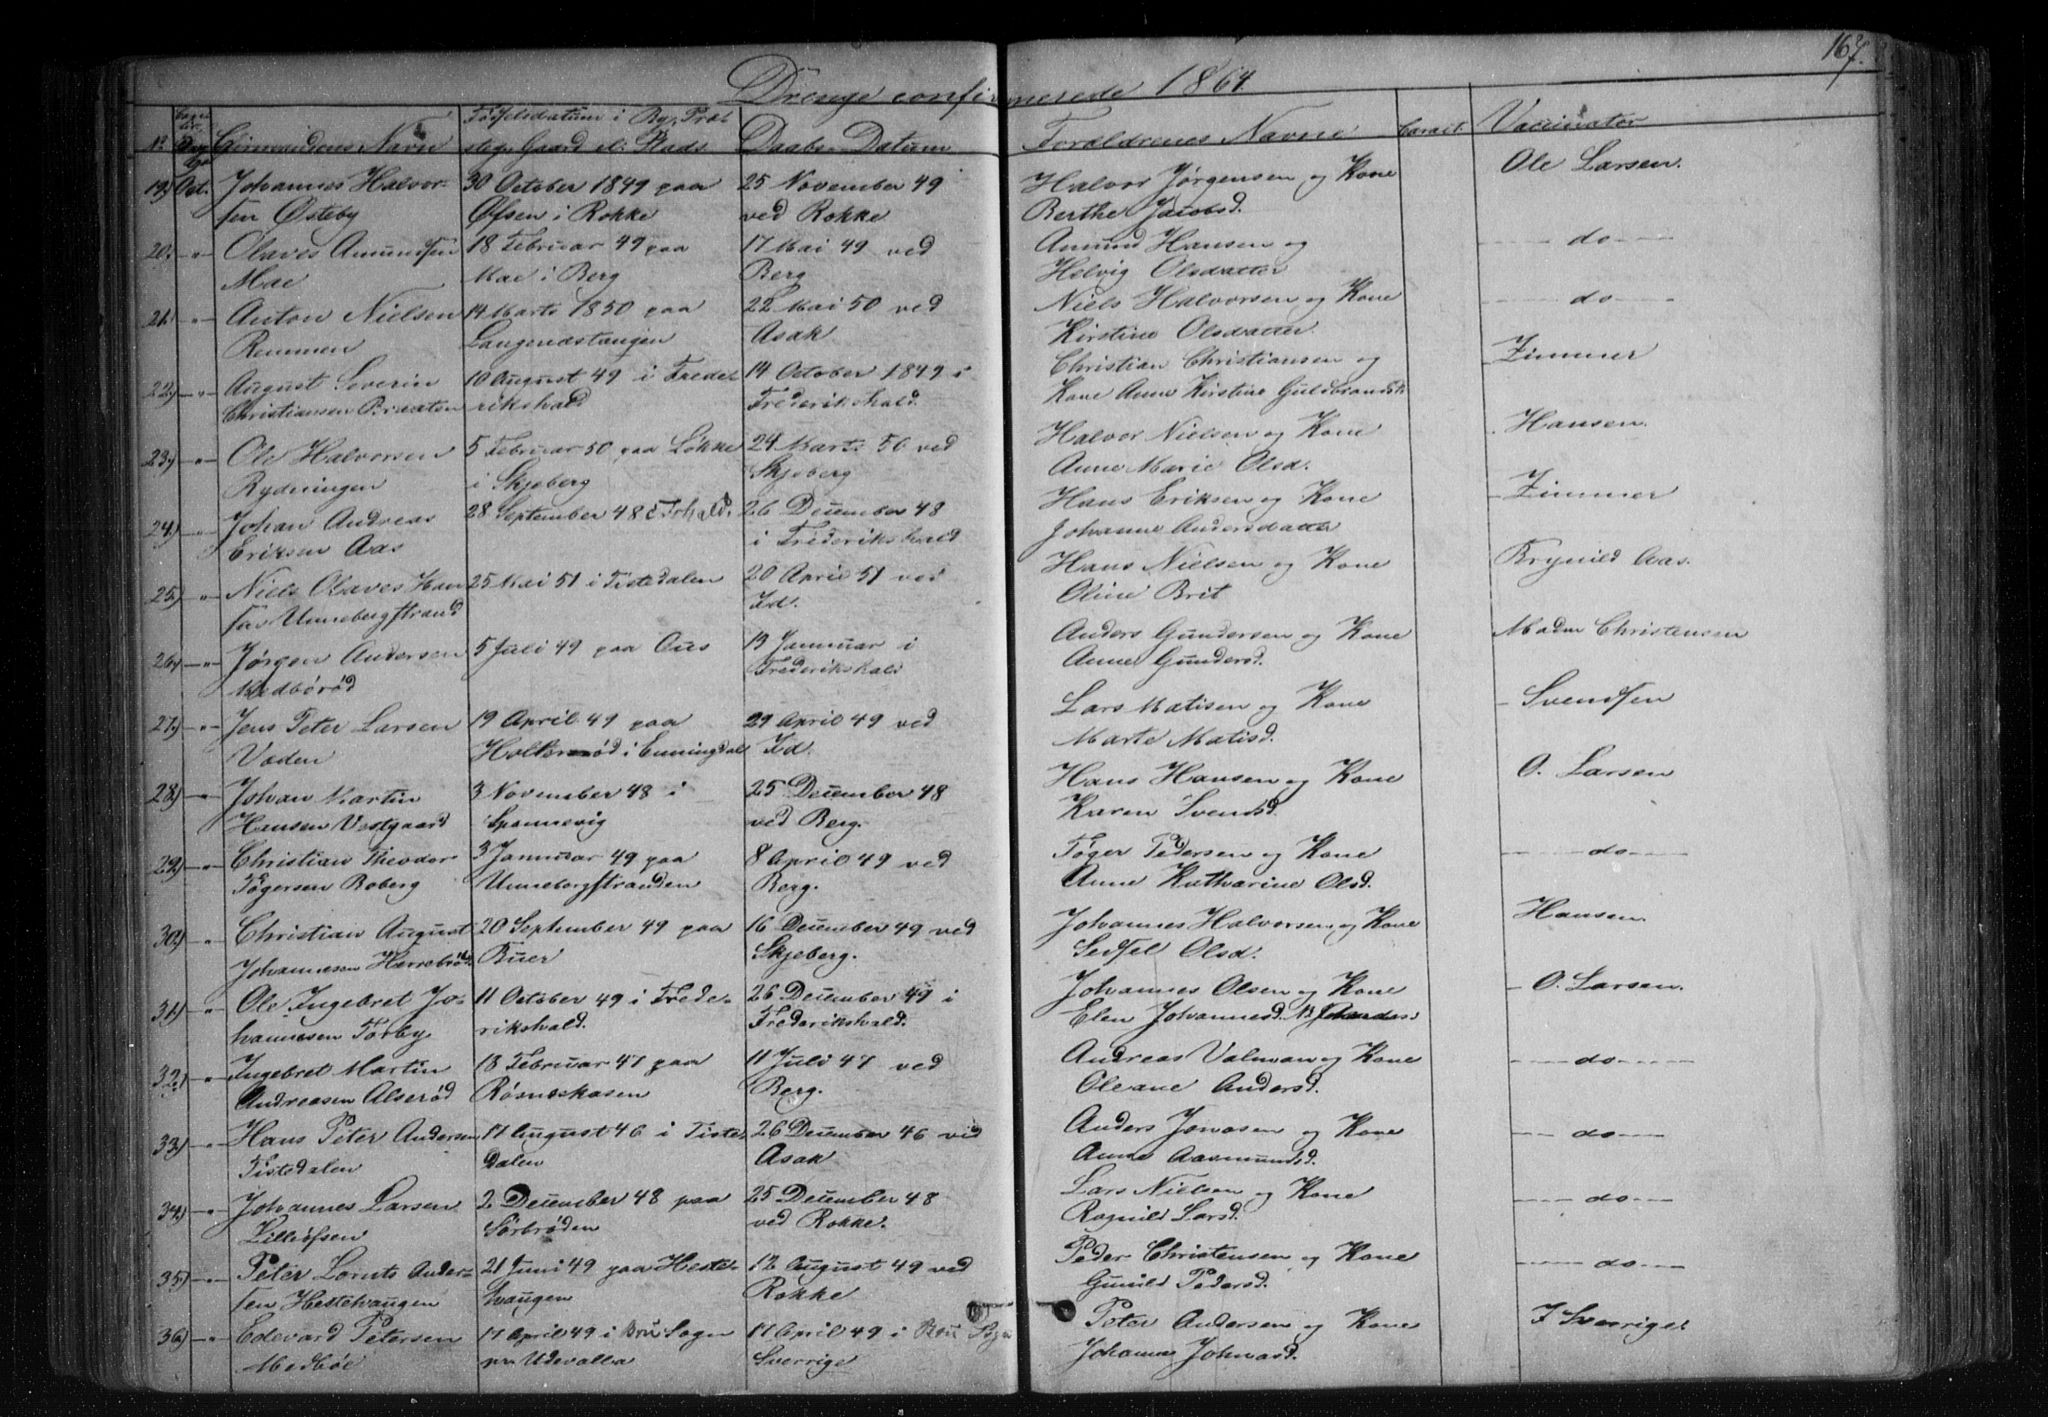 167.
Drenge confirmerede 1864
No Confirmandens Navn Fødselsdatum i By, Præstegj. Gaard el. Plads Daabs-Datum Forældrenes Navne Caract. Vaccinator
19) Oct. Johannes Halvor- 30 October 1849 paa 25 November 49 Halvor Jørgensen og Kone Ole Larsen.
sen Østeby Øfsen i Rokke ved Rokke Berthe Jacobsd.
20) " Olaves Amundsen 18 Februar 49 paa 17 Mai 49 ved Amund Hansen og do
Mae Mae i Berg Berg Helvig Olsdatter
21) " Anton Nielsen 14 Marts 1850 paa 22 Mai 50 ved Niels Halvorsen og Kone do
Remmen Langendstangen Asak Kirstine Olsdatter
22) " August Severin 10 August 49 i Frede- 14 October 1849 i Christian Christiansen og Zimmer
Christiansen Braaten rikshald Frederikshald. Kone Anne Kirstine Guldbrandsd.
23) " Ole Halvorsen 5 Februar 50 paa Løkke 24 Marts 50 ved Halvor Nielsen og Kone Hansen.
Rydningen i Skjeberg Skjeberg Anne Marie Olsd.
24) " Johan Andreas 28 September 48 i Frhald. 26 December 48 Hans Eriksen og Kone Zimmer
Eriksen Aas i Frederikshald Johanne Andersdatter
25) " Niels Olaves Han- 25 Mai 51 i Tistedalen 20 April 51 ved Hans Nielsen og Kone Brynild Aas.
sen Unnebergstrand Id. Oline Brit
26) " Jørgen Andersen 5 Juli 49 paa Ous 19 Januar i Anders Gundersen og Kone Madm Christensen
Medbørød Frederikshald Anne Gundersd.
27) " Jens Peter Larsen 19 April 49 paa 29 April 49 ved Lars Matisen og Kone Svendsen
Vaden Holtermrød i Enningdal Id. Marte Matisd.
28) " Johan Martin 3 November 48 i 25 December 48 Hans Hansen og Kone O. Larsen
Hansen Vestgaard Sponnevig ved Berg. Karen Svendsd.
29) " Christian Theodor 3 Januar 49 paa 8 April 49 ved Tøger Pedersen og Kone do
Tøgersen Boberg Unnebergstranden Berg. Anne Katharine Olsd.
30) " Christian August 20 September 49 paa 16 December 49 ved Johannes Halvorsen og Kone Hansen.
Johannesen Herrebrød. Buer Skjeberg. Sidsel Olsd.
31) " Ole Ingebret Jo- 11 October 49 i Frede- 26 December 49 i Johannes Olsen og Kone O. Larsen.
hannesen Torby rikshald. Frederikshald. Elen Johannesd.
32) " Ingebret Martin 18 Februar 47 paa 11 Juli 47 ved Andreas Valman og Kone do
Andreasen Alserød Røsneskasen Berg. Oleane Andersd.
33) " Hans Peter Andersen 17 August 46 i Tiste- 26 December 46 ved Anders Jonasen og Kone do
Tistedalen dalen Asak Anne Aasmundsd.
34) " Johannes Larsen 2 December 48 paa 25 December 48 Lars Nielsen og Kone do
Lilleøfsen Sørbrøden ved Rokke. Ragnild Larsd.
35) " Peter Lornts Ander- 21 Juni 49 paa Heste- 12 August 49 ved Peder Christensen og Kone do
sen Hestehaugen haugen Rokke Gunild Pedersd.
36) " Edevard Petersen 17 April 49 i Bru Sogn 17 April 49 i Bru Sogn Peter Andersen og Kone I Sverrige.
Medbøe pr. Udevalla Sverrige Johanne Johnasd.